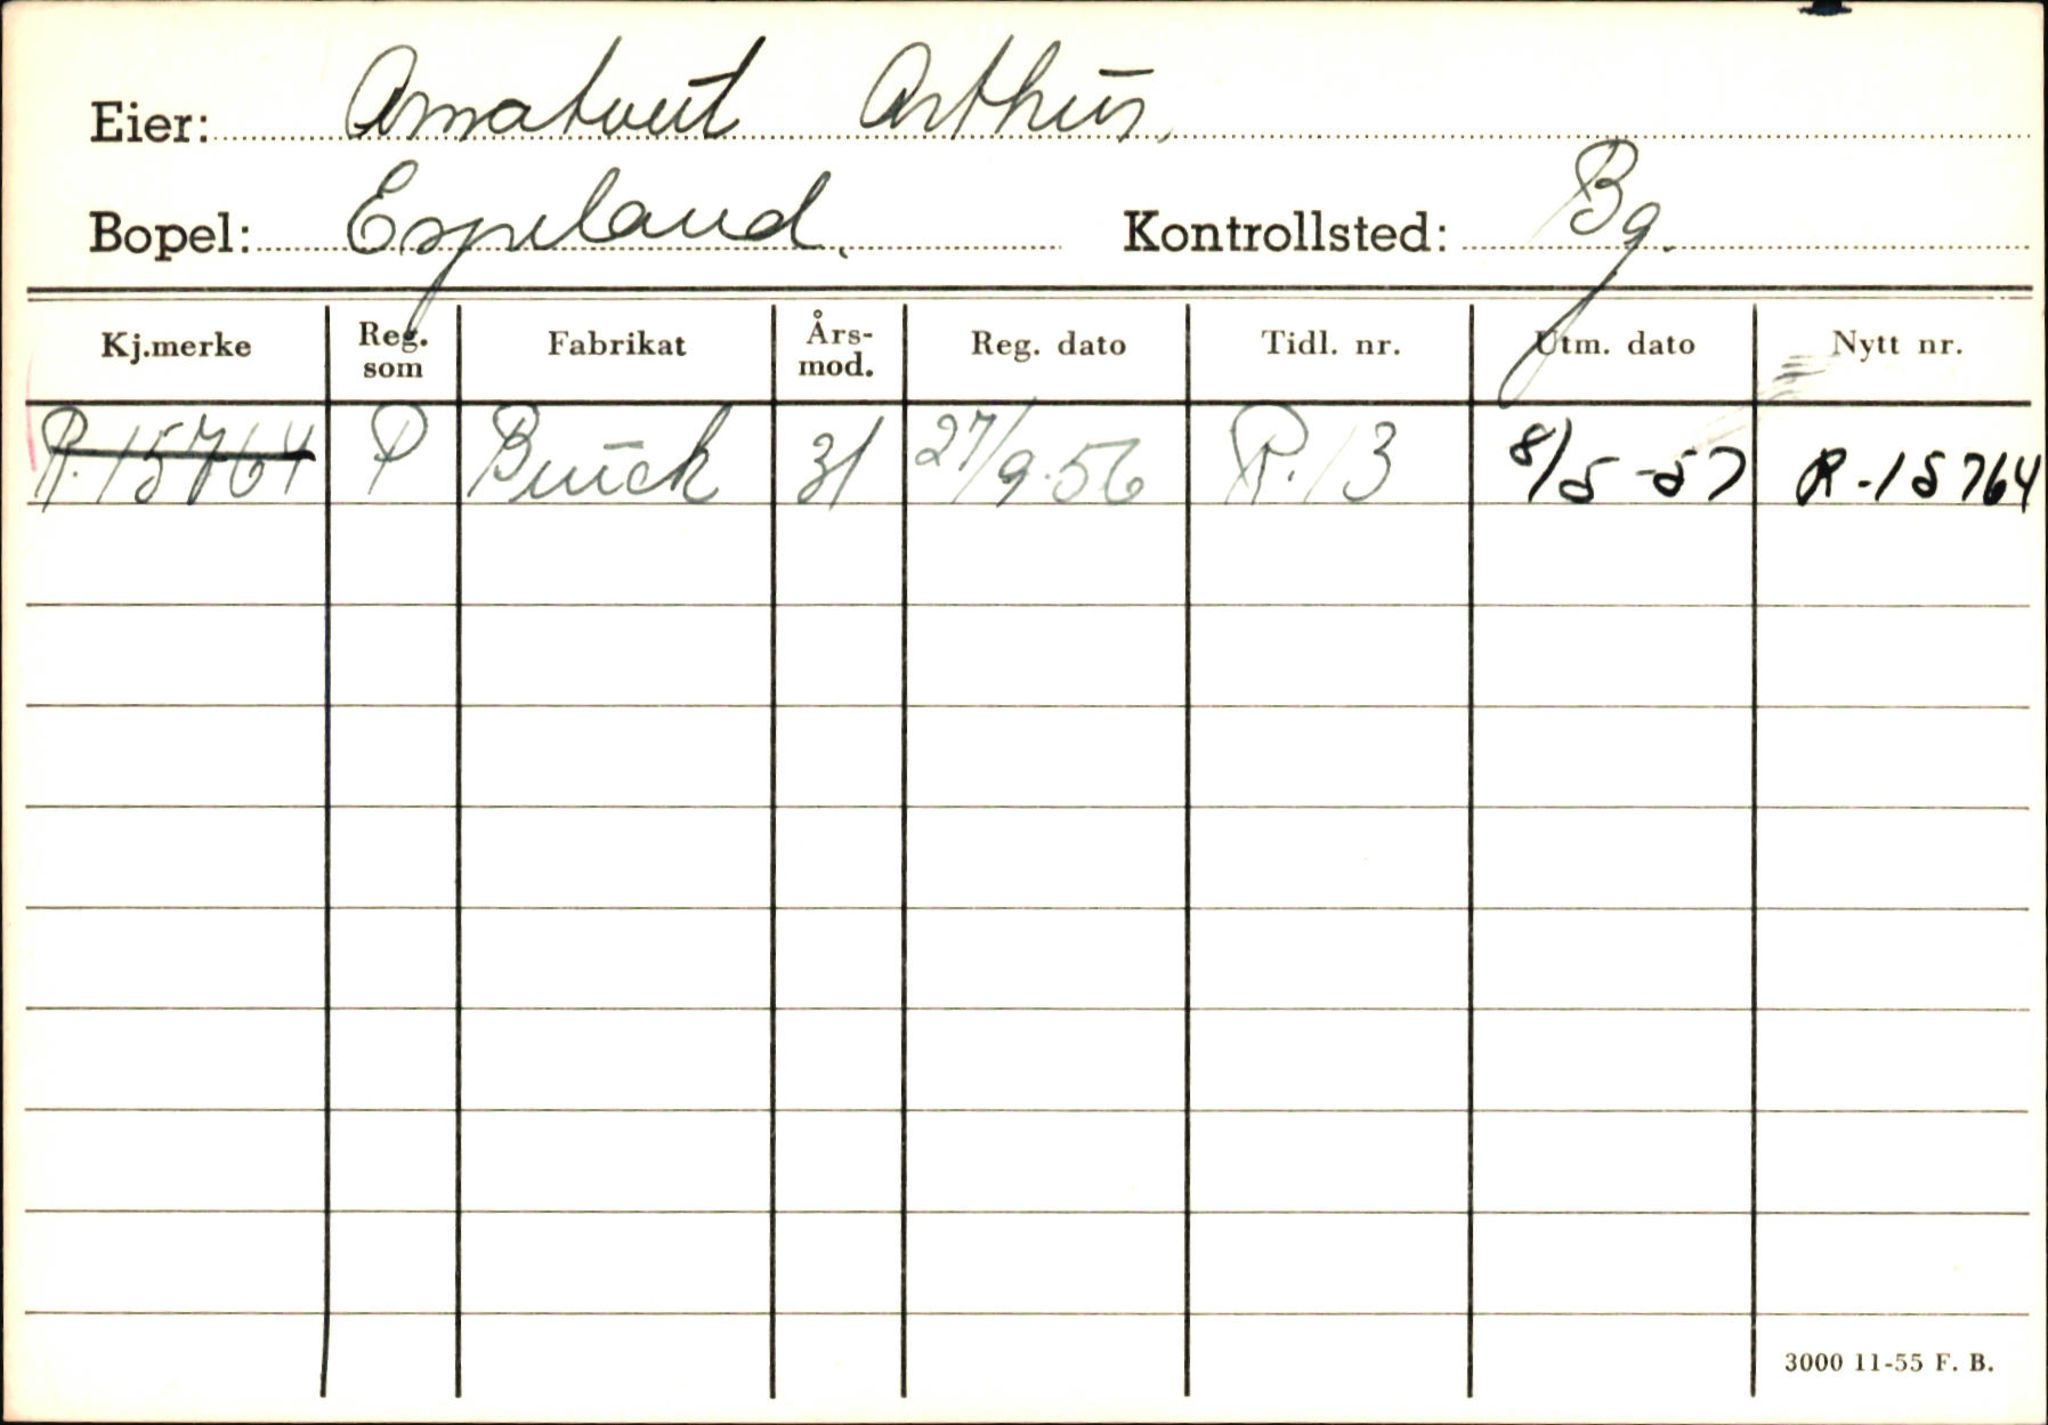 Eier: Arnatveit Arthur.
Bopel: Espeland. Kontrollsted: Bg.
Kj.merke Reg. som Fabrikat Års-mod. Reg. dato Tidl. nr. Utm. dato Nytt nr.
R.15764 P Buick 31 27/9-56 R.13 8/5-57 R-15764
3000 11-55 F. B.